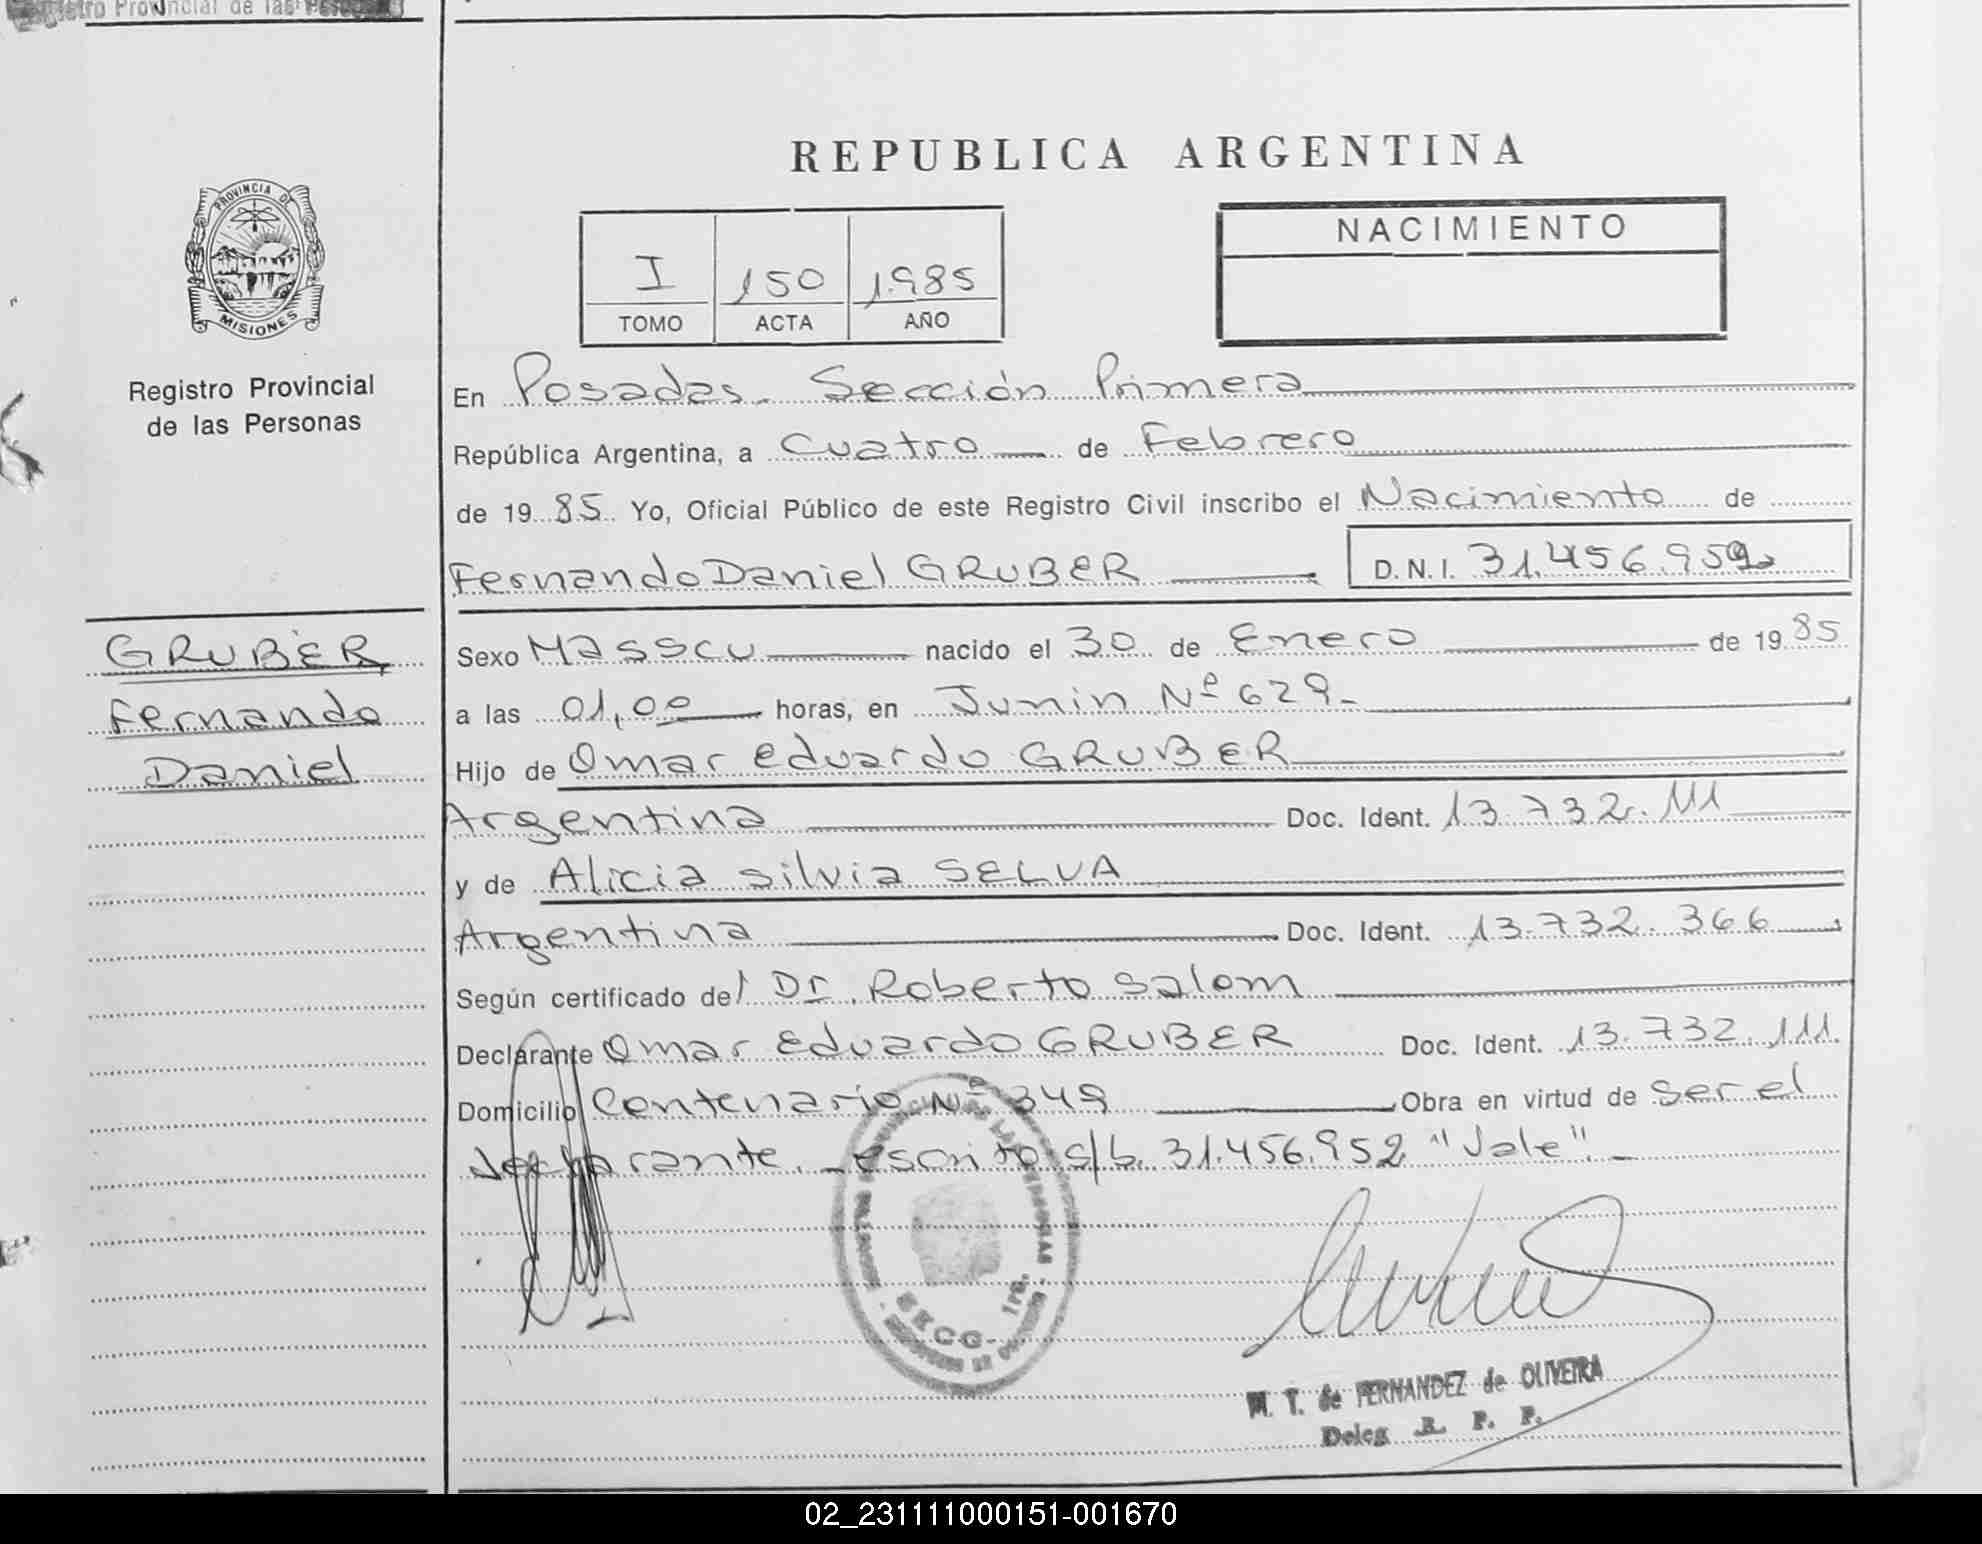 Registro Provincial de las Personas
REPUBLICA ARGENTINA
PROVINCIA DE
MISIONES
Registro Provincial
de las Personas
I 150 1.985
TOMO ACTA AÑO
NACIMIENTO
En Posadas. Sección Primera
República Argentina, a Cuatro de Febrero
de 19 85 Yo, Oficial Público de este Registro Civil inscribo el Nacimiento de
Fernando Daniel GRUBER D.N.I. 31.456.952
GRUBER
Fernando
Daniel
Sexo Masscu nacido el 30 de Enero de 19 85
a las 01,00 horas, en Junin Nº 629-
Hijo de Omar Eduardo GRUBER
Argentina Doc. Ident. 13.732.111
y de Alicia Silvia SELVA
Argentina Doc. Ident. 13.732.366
Según certificado del Dr. Roberto Salom
Declarante Omar Eduardo GRUBER Doc. Ident. 13.732.111.
Domicilio Centenario Nº 349 Obra en virtud de ser el
declarante. escrito s/b. 31.456.952 "Vale".-
SECC. 1ra.
M. T. de FERNANDEZ de OLIVEIRA
Deleg R. P. P.
02_231111000151-001670